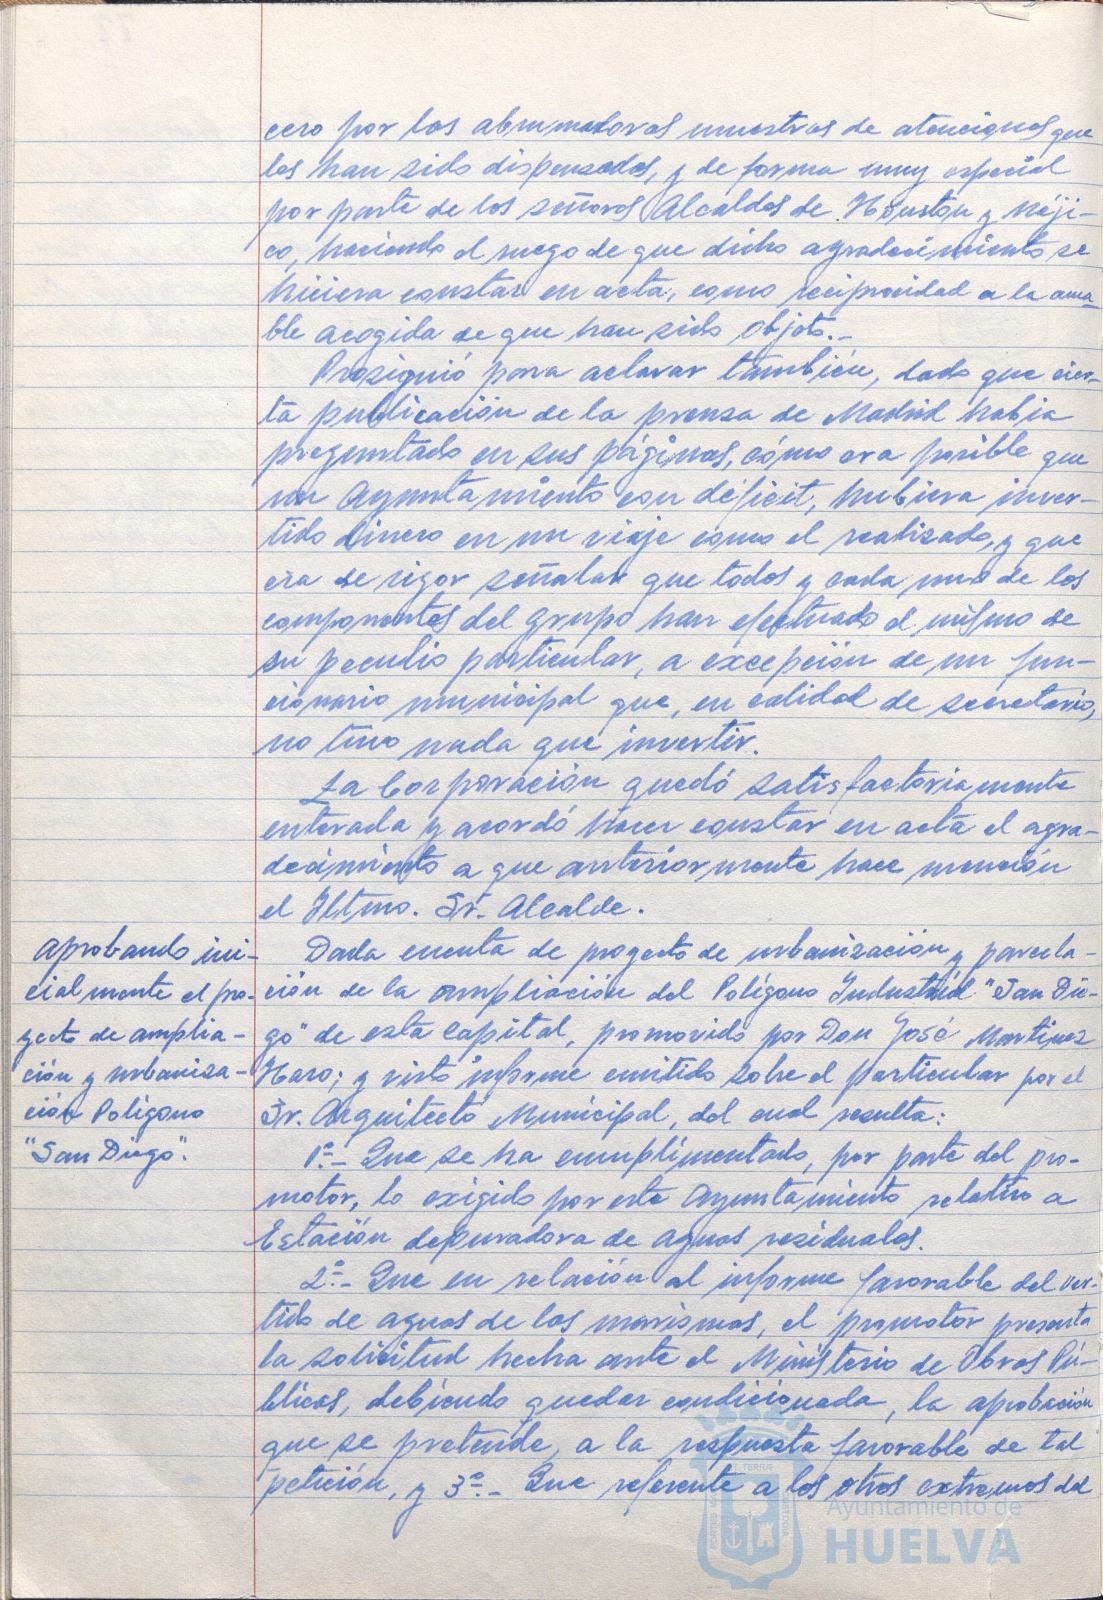 cero por las abrumadoras muestras de atenciones que
les han sido dispensadas, y de forma muy especial
por parte de los señores Alcaldes de Houston y Méji-
co, haciendo el ruego de que dicho agradecimiento se
hiciera constar en acta, como reciprocidad a la ama-
ble acogida de que han sido objeto.-
Prosiguió para aclarar también, dado que cier-
ta publicación de la prensa de Madrid había
preguntado en sus páginas, cómo era posible que
un Ayuntamiento con déficit, hubiera inver-
tido dinero en un viaje como el realizado, y que
era de rigor señalar que todos y cada uno de los
componentes del grupo han efectuado el mismo de
su peculio particular, a excepción de un fun-
cionario municipal que, en calidad de secretario,
no tuvo nada que invertir.
La Corporación quedó satisfactoriamente
enterada y acordó hacer constar en acta el agra-
decimiento a que anteriormente hace mención
el Iltmo. Sr. Alcalde.
Aprobando ini-
cialmente el pro-
yecto de amplia-
ción y urbaniza-
ción Polígono
"San Diego".
Dada cuenta de proyecto de urbanización y parcela-
ción de la ampliación del Polígono Industrial "San Die-
go" de esta capital, promovido por Don José Martínez
Haro; y visto informe emitido sobre el particular por el
Sr. Arquitecto Municipal, del cual resulta:
1º.- Que se ha cumplimentado, por parte del pro-
motor, lo exigido por este Ayuntamiento relativo a
Estación depuradora de aguas residuales.
2º.- Que en relación al informe favorable del ver-
tido de aguas de las marismas, el promotor presenta
la solicitud hecha ante el Ministerio de Obras Pú-
blicas, debiendo quedar condicionada, la aprobación
que se pretende, a la respuesta favorable de tal
petición, y 3º.- Que referente a los otros extremos del
Ayuntamiento de
HUELVA